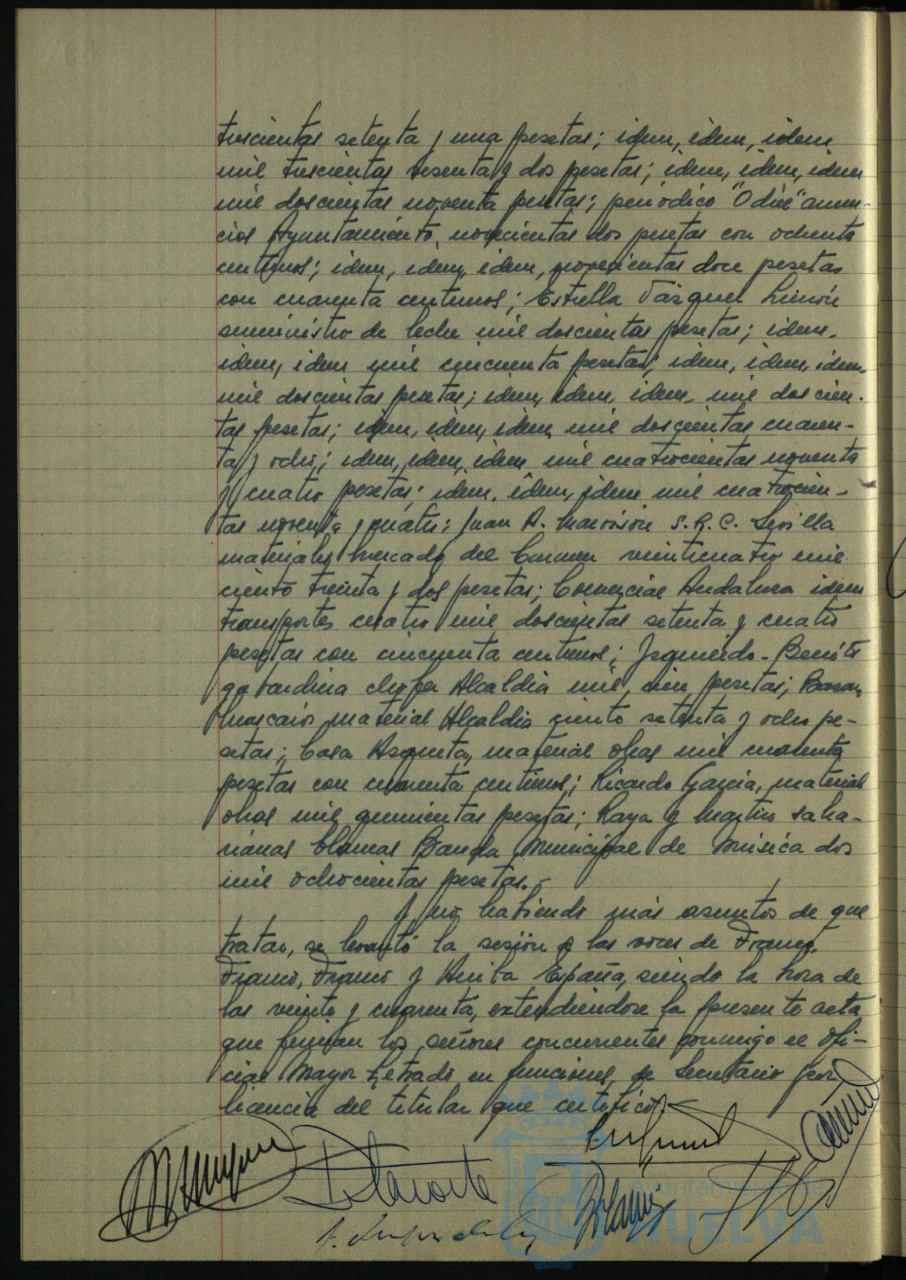 trescientas setenta y una pesetas; idem, idem, idem
mil trescientas sesenta y dos pesetas; idem, idem, idem
mil doscientas noventa pesetas; periódico "Odiel" anun-
cios Ayuntamiento, novecientas dos pesetas con ochenta
centimos; idem, idem, idem, novecientas doce pesetas
con cuarenta centimos; Estrella Vázquez Limón
suministro de leche mil doscientas pesetas; idem,
idem, idem mil cincuenta pesetas; idem, idem, idem,
mil doscientas pesetas; idem, idem, idem, mil doscien-
tas pesetas; idem, idem, idem, mil doscientas cuaren-
ta y ocho; idem, idem, idem mil cuatrocientas noventa
y cuatro pesetas; idem, idem, idem mil cuatrocien-
tas noventa y cuatro; Juan A. S.R.C. Sevilla
materiales Mercado del Carmen veinticuatro mil
ciento treinta y dos pesetas; Comercial Andaluza idem
transportes cuatro mil doscientas setenta y cuatro
pesetas con cincuenta centimos; Izquierdo-Benito
gabardina chofer Alcaldía mil cien pesetas;
material Alcaldía ciento setenta y ocho pe-
setas; Casa Azqueta, material obras mil cuarenta
pesetas con cuarenta centimos; Ricardo García, material
obras mil quinientas pesetas; Raya y Martin saha-
rianas blancas Banda Municipal de Música dos
mil ochocientas pesetas.-
Y no habiendo más asuntos de que
tratar, se levantó la sesión a las voces de Franco,
Franco, Franco y Arriba España, siendo la hora de
las veinte y cuarenta, extendiéndose la presente acta
que firman los señores concurrentes conmigo el Ofi-
cial Mayor Letrado en funciones de Secretario por
licencia del titular que certifico.-
Ayuntamiento de
HUELVA